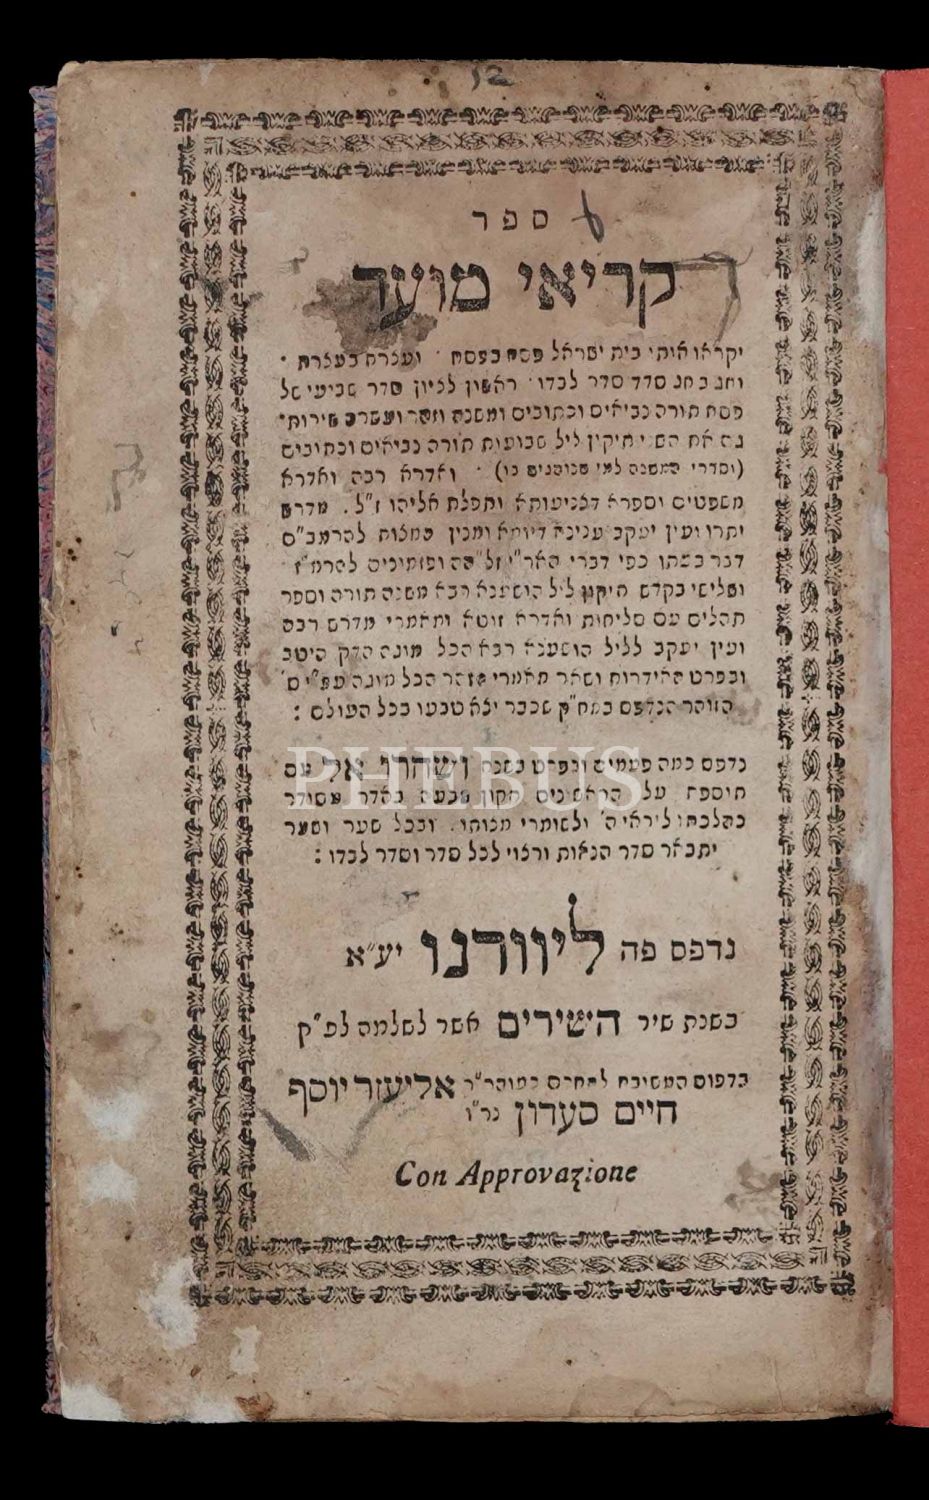 ספר
קריאי מועד
יקראו אותי בית ישראל פסח בפסח · ועצרת בעצרת ·
וחג בחג סדר סדר לבדו · ראשון לציון סדר שביעי של
פסח תורה נביאים וכתובים ומשנה וזהר ועשרב שירות ·
גם את השני תיקון ליל שבועות תורה נביאים וכתובים
(וסדרי המשנה למי שנוהגים בו) · ואדרא רבה ואדרא
משפטים וספרא דצניעותא ותפלת אליהו ז"ל . מדרש
יתרו ועין יעקב ענינא דיומא ומנין המצות להרמב"ם
דבר בעתו כפי דברי האר"י זל"הה ופזמונים להרמ"ז
ושלישי בקדש תיקון ליל הושענא רבא משנה תורה וספר
תהלים עם סליחות ואדרא זוטא ומאמרי מדרש רבה
ועין יעקב לליל הושענא רבא הכל מוגה הדק היטב
ובפרט האידרות ושאר מאמרי הזהר הכל מוגה עפ"י ס'
הזוהר הנדפס במח"ק שכבר יצא טבעו בכל העולם :
נדפס כמה פעמים ובפרט בשנת וישחרו אל עם
תוספת על הראשונים תקון שבעה באדר מסודר
כהלכתו ליראי ה' ולשומרי מצותו . ובכל שער ושער
יתבאר סדר הנאות ורצוי לכל סדר וסדר לבדו :
נדפס פה ליוורנו יע"א
בשנת שיר השירים אשר לשלמה לפ"ק
בדפוס המשובח לחכם כמוהר"ר אליעזר יוסף
חיים סעדון נר"ו
Con Approvazione
PHEBUS